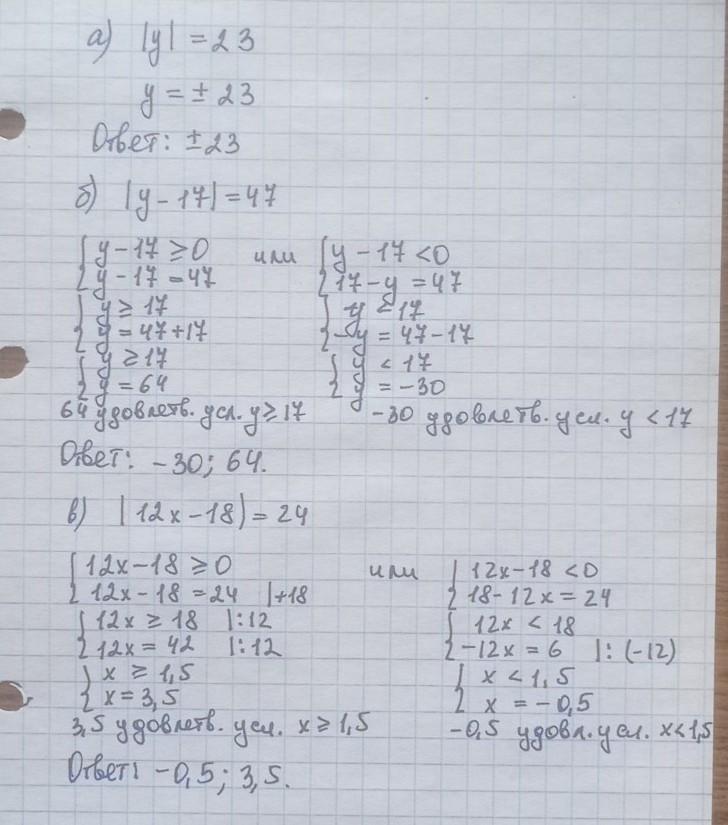 а) |y| = 23
y = ± 23
Ответ: ±23
б) |y - 17| = 47
{ y - 17 ≥ 0 или { y - 17 < 0
{ y - 17 = 47 { 17 - y = 47
{ y ≥ 17 { y < 17
{ y = 47 + 17 { -y = 47 - 17
{ y ≥ 17 { y < 17
{ y = 64 { y = -30
64 удовлетв. усл. y ≥ 17 -30 удовлетв. усл. y < 17
Ответ: -30; 64.
в) |12x - 18| = 24
{ 12x - 18 ≥ 0 или { 12x - 18 < 0
{ 12x - 18 = 24 |+18 { 18 - 12x = 24
{ 12x ≥ 18 |:12 { 12x < 18
{ 12x = 42 |:12 { -12x = 6 |: (-12)
{ x ≥ 1,5 { x < 1,5
{ x = 3,5 { x = -0,5
3,5 удовлетв. усл. x ≥ 1,5 -0,5 удовл. усл. x < 1,5
Ответ: -0,5; 3,5.